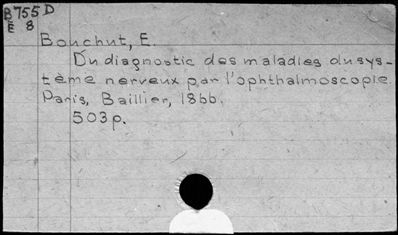 B755D
E 8
Bouchut, E.
Du diagnostic des maladies du sys-
tème nerveux par l'ophthalmoscopie.
Paris, Baillier, 1866.
503p.